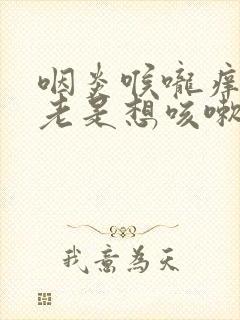 咽炎喉嚨痒
老是想咳嗽
我意為天